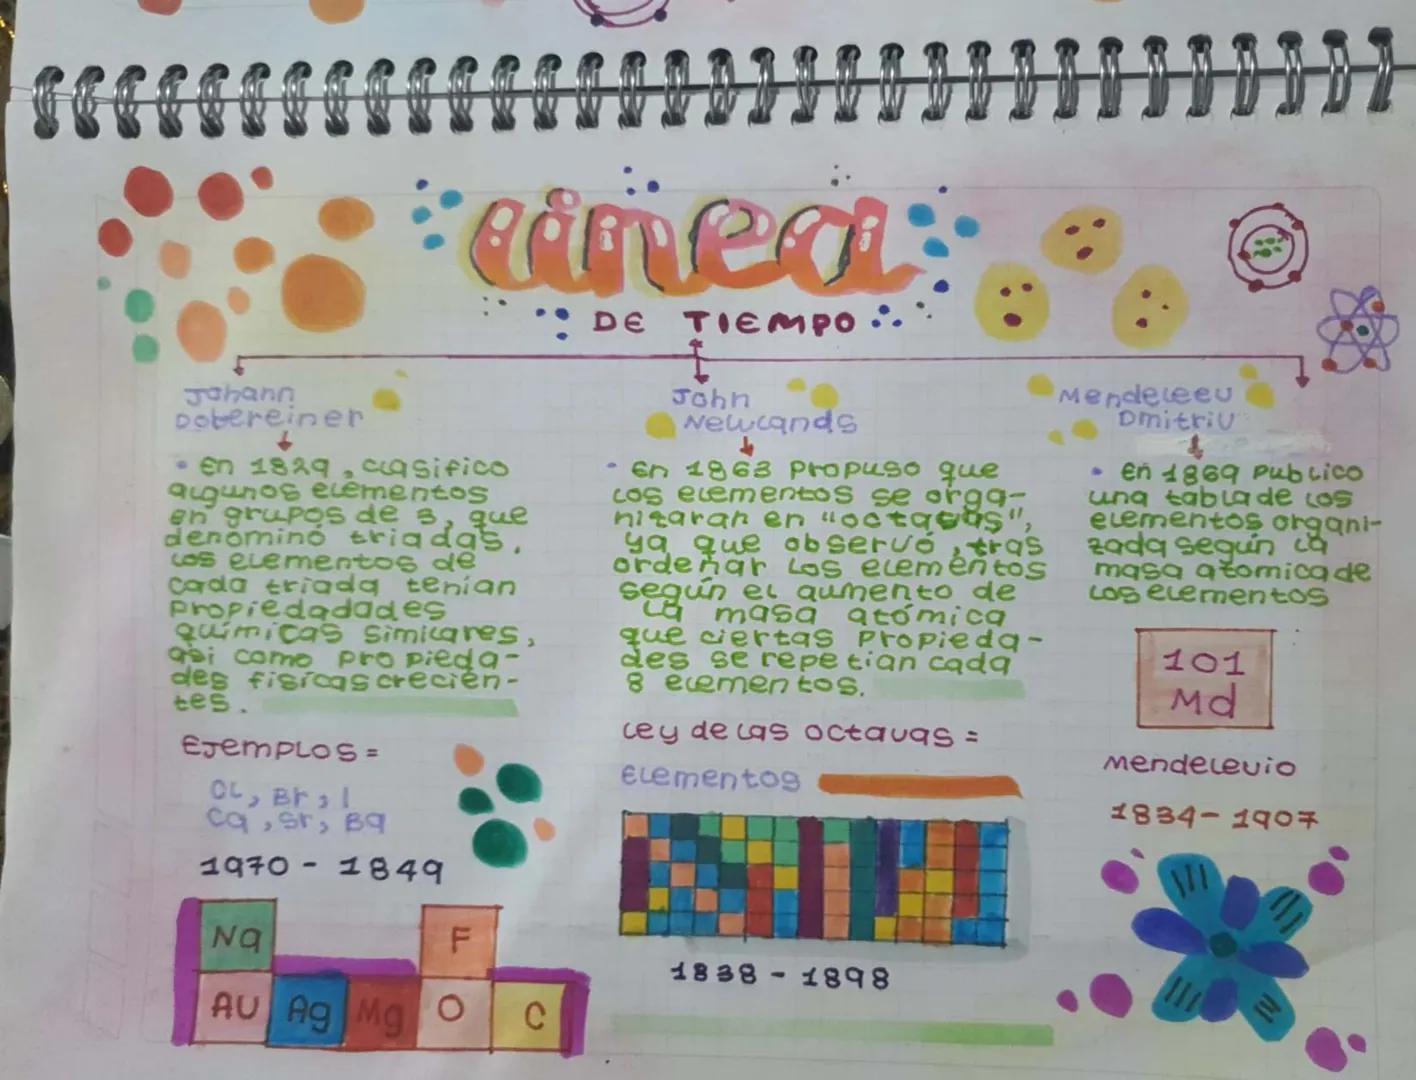 Linea
DE TIEMPO
Johann
Dobereiner
• En 1829, clasifico
algunos elementos
en grupos de 3, que
denominó triadas.
Los elementos de
cada triada tenían
propiedadades
químicas similares,
asi como propieda-
des fisicas crecien-
tes.
Ejemplos =
CL, Br, I
Ca, Sr, Ba
1970 - 1849
Na
F
AU Ag Mg O C
John
Newlands
• En 1863 propuso que
los elementos se orga-
nizaran en "octavas",
ya que observó, tras
ordenar los elementos
según el aumento de
la masa atómica
que ciertas propieda-
des se repetian cada
8 elementos.
Ley de las octavas =
Elementos
1838 - 1898
Mendeleev
Dmitriv
• En 1869 publico
una tabla de los
elementos organi-
zada según la
masa atomica de
los elementos
101
Md
Mendelevio
1834 - 1907